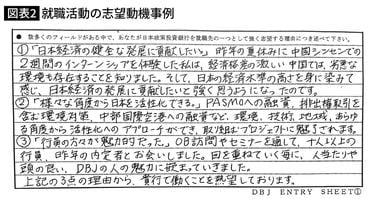 図表2 就職活動の志望動機事例
● 数多くのフィールドがある中で、あなたが日本政策投資銀行を就職先の一つとして強く志望する理由につき述べて下さい。
①「日本経済の健全な発展に貢献したい。」昨年の夏休みに中国シンセンでの
2週間のインターンシップを体験した私は、経済格差の激しい中国では、劣悪な
環境も存在することを知りました。そして、日本の経済水準の高さを身に染みて
感じ、日本経済の発展に貢献したいと強く思うようになったのです。
②「様々な角度から日本を活性化できる。」PASMOへの融資、排出権取引を
含む環境対策、中部国際空港への融資など、環境、技術、地域、あらゆ
る角度から活性化へのアプローチができ、取り組むプロジェクトに魅了されます。
③「行員の方々が魅力的だった。」OB訪問やセミナーを通して、十人以上の
行員、昨年の内定者とお会いしました。回を重ねていく毎に、人学たりや
頭の良い、DBJの人の魅力に嵌まっていきました。
上記の3点の理由から、貴行で働くことを熱望しております。
DBJ ENTRY SHEET①